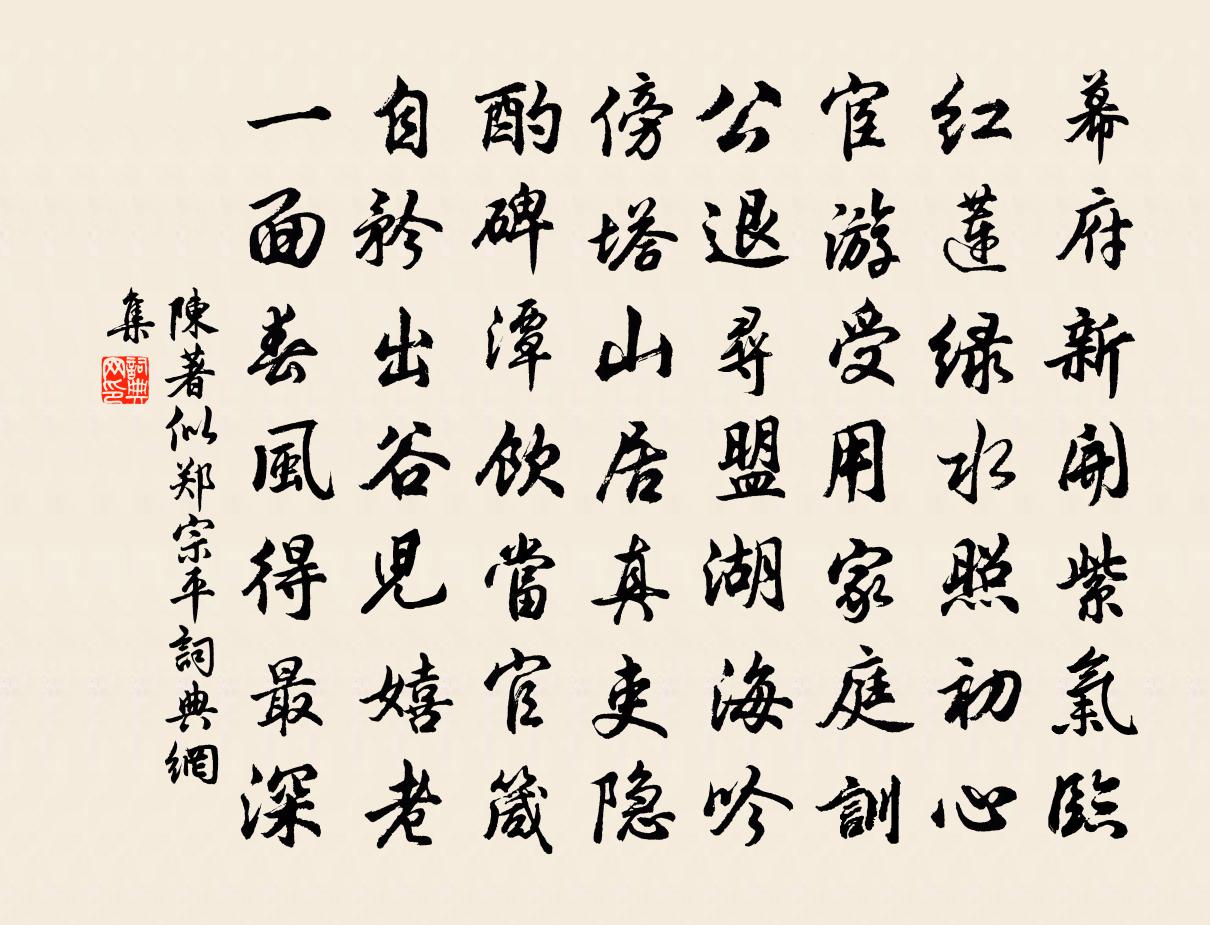 幕府新開紫氣臨
红蓮緑水照初心
宦游受用家庭訓
公退尋盟湖海吟
傍塔山居真吏隐
酌碑潭飲當官箴
自矜出谷児嬉老
一面春風得最深
陳著似郑宗平詞典網
集
詞典网印